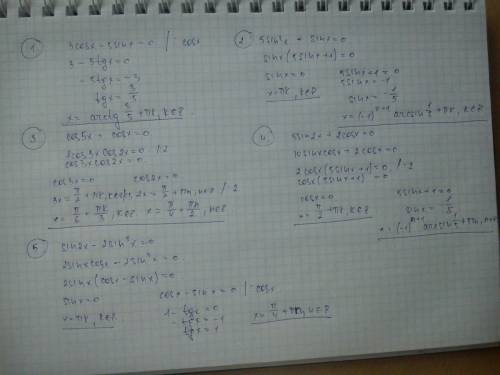 ①
3cosx - 5sinx = 0 /: cosx
3 - 5tgx = 0
-5tgx = -3
tgx = 3/5
x = arctg 3/5 + πk, k∈Z
②
5sin²x + sinx = 0
sinx(5sinx+1) = 0
sinx = 0
x = πk, k∈Z
5sinx+1 = 0
5sinx = -1
sinx = -1/5
x = (-1)ⁿ⁺¹ arcsin 1/5 + πk, k∈Z
③
cos5x + cosx = 0
2cos3x cos2x = 0 /:2
cos3x cos2x = 0
cos3x = 0
3x = π/2 + πk, k∈Z /:3
x = π/6 + πk/3, k∈Z
cos2x = 0
2x = π/2 + πn, n∈Z /:2
x = π/4 + πn/2, n∈Z
④
5sin2x + 2cosx = 0
10sinxcosx + 2cosx = 0
2cosx(5sinx+1) = 0 /:2
cosx(5sinx+1) = 0
cosx = 0
x = π/2 + πk, k∈Z
5sinx+1 = 0
sinx = -1/5
x = (-1)ⁿ⁺¹ arcsin 1/5 + πn, n∈Z
⑤
sin2x - 2sin²x = 0
2sinxcosx - 2sin²x = 0
2sinx(cosx - sinx) = 0
sinx = 0
x = πk, k∈Z
cosx - sinx = 0 /: cosx
1 - tgx = 0
-tgx = -1
tgx = 1
x = π/4 + πn, n∈Z